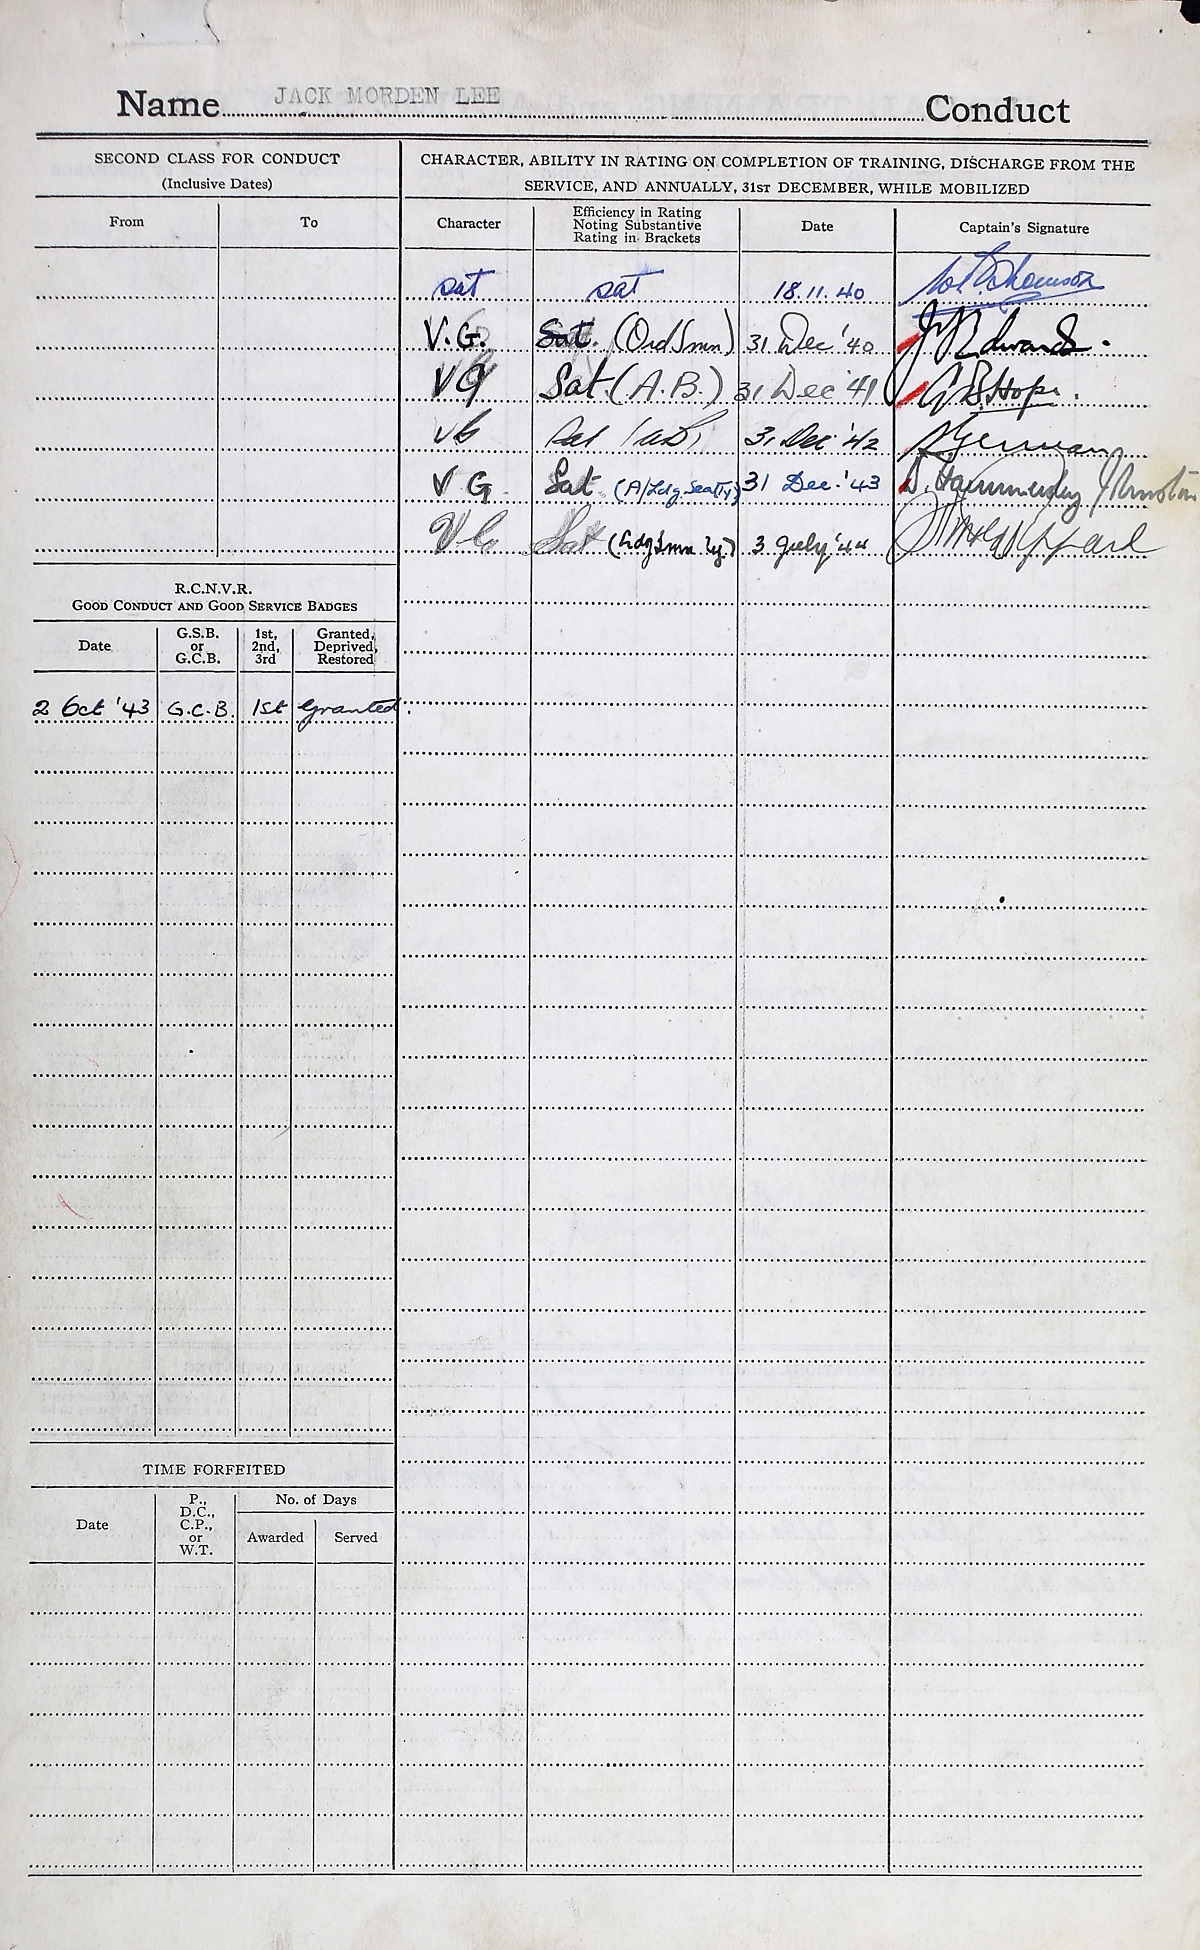 Name JACK MORDEN LEE Conduct
SECOND CLASS FOR CONDUCT
(Inclusive Dates)
From To
CHARACTER, ABILITY IN RATING ON COMPLETION OF TRAINING, DISCHARGE FROM THE
SERVICE, AND ANNUALLY, 31ST DECEMBER, WHILE MOBILIZED
Character
Efficiency in Rating
Noting Substantive
Rating in Brackets
Date
Captain's Signature
sat sat 18.11.40
V.G. Sat. (Ord Smn) 31 Dec '40 Edwards.
VG Sat (A.B.) 31 Dec '41 Hope.
VG Sat (AB) 31 Dec '42 German
V G Sat (A/Ldg. Sea(Ty) 31 Dec. '43 D. Hammersley Johnston
VG Sat (Ldg Smn Ty.) 3 July '44
R.C.N.V.R.
GOOD CONDUCT AND GOOD SERVICE BADGES
Date
G.S.B.
or
G.C.B.
1st,
2nd,
3rd
Granted,
Deprived,
Restored
2 Oct '43 G.C.B. 1st Granted.
TIME FORFEITED
Date
P.,
D.C.,
C.P.,
or
W.T.
No. of Days
Awarded Served